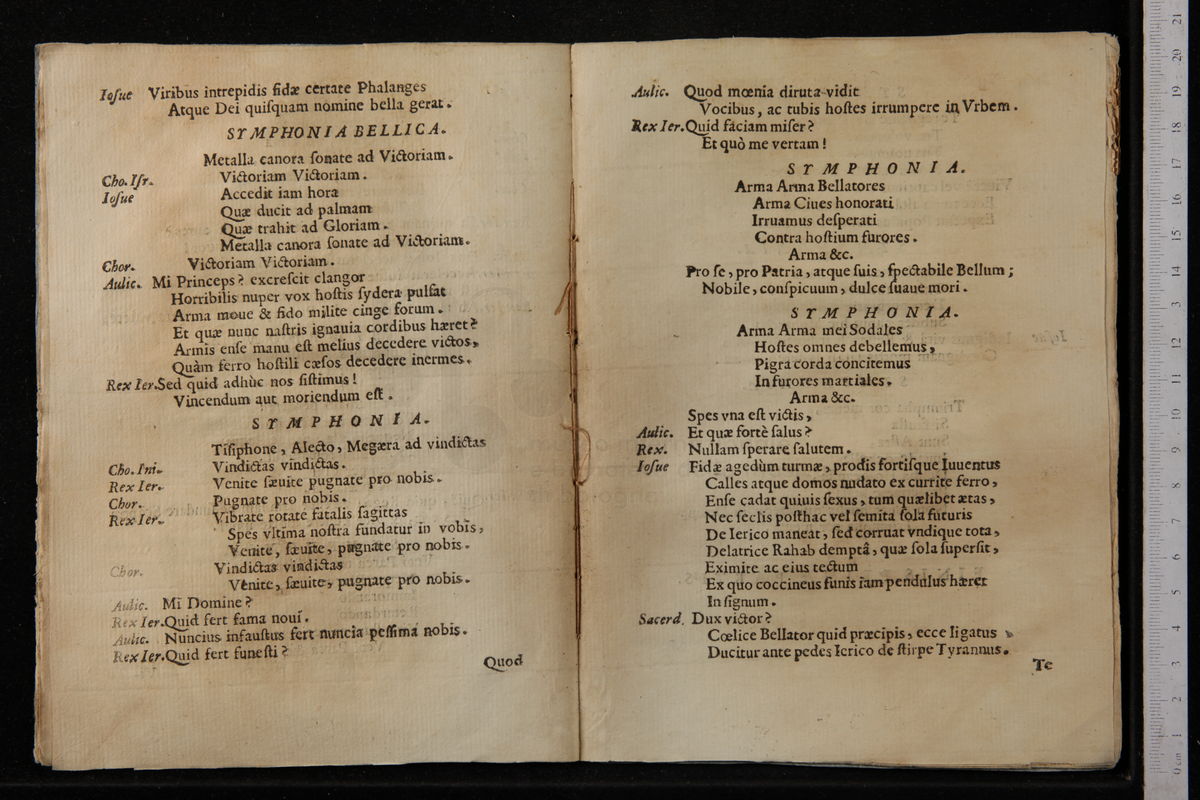 Iosue Viribus intrepidis fidæ certate Phalanges
Atque Dei quisquam nomine bella gerat.
SYMPHONIA BELLICA.
Metalla canora sonate ad Victoriam.
Cho. Isr. Victoriam Victoriam.
Iosue Accedit iam hora
Quæ ducit ad palmam
Quæ trahit ad Gloriam.
Metalla canora sonate ad Victoriam.
Chor. Victoriam Victoriam.
Aulic. Mi Princeps? excrescit clangor
Horribilis nuper vox hostis sydera pulsat
Arma moue & fido milite cinge forum.
Et quæ nunc nastris ignauia cordibus hæret?
Armis ense manu est melius decedere victos,
Quàm ferro hostili cæsos decedere inermes.
Rex Ier. Sed quid adhùc nos sistimus!
Vincendum aut moriendum est.
SYMPHONIA.
Tisiphone, Alecto, Megæra ad vindictas
Cho. Ini. Vindictas vindictas.
Rex Ier. Venite sæuite pugnate pro nobis.
Chor. Pugnate pro nobis.
Rex Ier. Vibrate rotate fatalis sagittas
Spes vltima nostra fundatur in vobis,
Venite, sæuite, pugnate pro nobis.
Chor. Vindictas vindictas
Venite, sæuite, pugnate pro nobis.
Aulic. Mi Domine?
Rex Ier. Quid fert fama noui.
Aulic. Nuncius infaustus fert nuncia pessima nobis.
Rex Ier. Quid fert funesti?
Quod
Aulic. Quod mœnia diruta vidit
Vocibus, ac tubis hostes irrumpere in Vrbem.
Rex Ier. Quid faciam miser?
Et quò me vertam!
SYMPHONIA.
Arma Arma Bellatores
Arma Ciues honorati
Irruamus desperati
Contra hostium furores.
Arma &c.
Pro se, pro Patria, atque suis, spectabile Bellum;
Nobile, conspicuum, dulce suaue mori.
SYMPHONIA.
Arma Arma mei Sodales
Hostes omnes debellemus,
Pigra corda concitemus
In furores martiales.
Arma &c.
Spes vna est victis,
Aulic. Et quæ fortè salus?
Rex. Nullam sperare salutem.
Iosue Fidæ agedùm turmæ, prodis fortisque Iuuentus
Calles atque domos nudato ex currite ferro,
Ense cadat quiuis sexus, tum quælibet ætas,
Nec seclis posthac vel semita sola futuris
De Ierico maneat, sed corruat vndique tota,
Delatrice Rahab demptâ, quæ sola supersit,
Eximite ac eius tectum
Ex quo coccineus funis iam pendulus hæret
In signum.
Sacerd. Dux victor?
Cœlice Bellator quid præcipis, ecce ligatus
Ducitur ante pedes Ierico de stirpe Tyrannus.
Te
0 cm 1 2 3 4 5 6 7 8 9 10 11 12 13 14 15 16 17 18 19 20 21